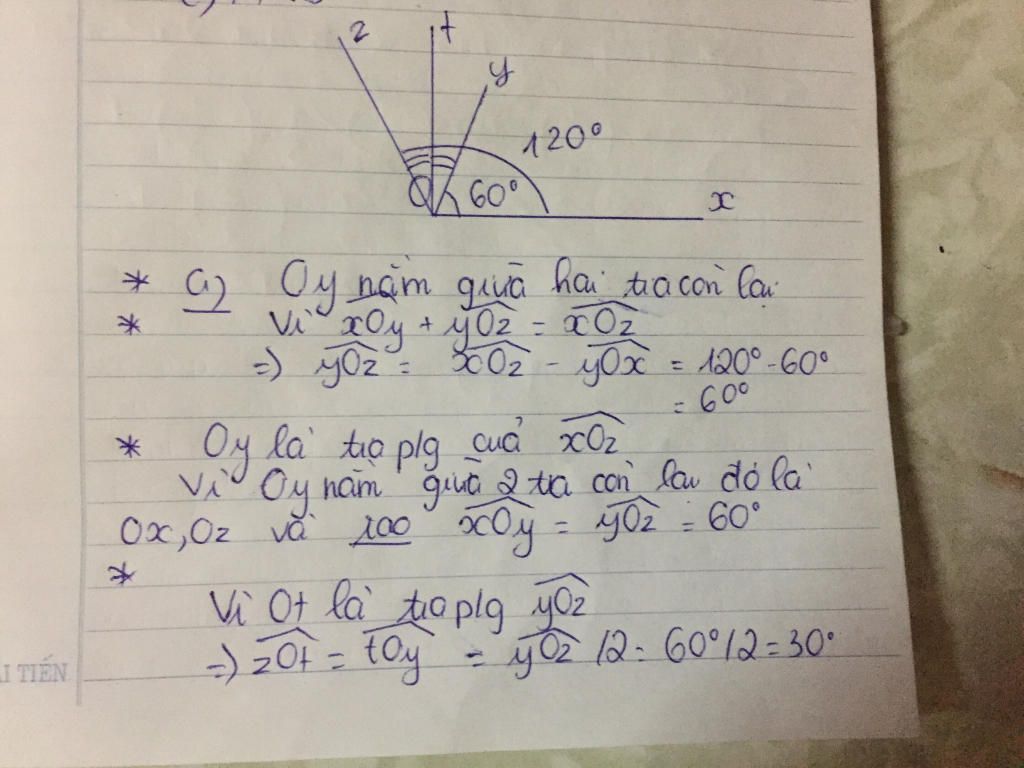 z t
y
120°
O 60° x
* a) Oy nằm giữa hai tia còn lại
* Vì xOy + yOz = xOz
=) yOz = xOz - yOx = 120° - 60°
= 60°
* Oy là tia plg của xOz
Vì Oy nằm giữa 2 tia còn lại đó là
Ox, Oz và xOy = yOz = 60°
*
Vì Ot là tia plg yOz
=) zOt = tOy = yOz /2 = 60° /2 = 30°
ẢI TIẾN